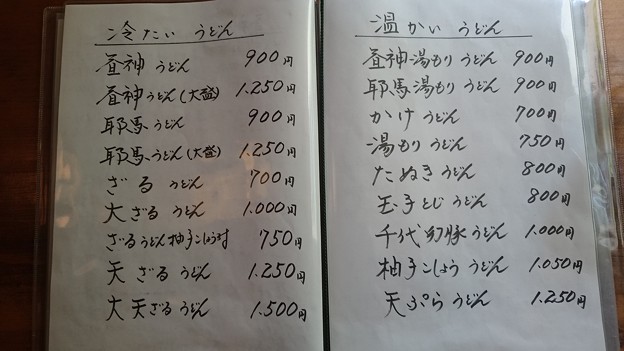 冷たい うどん
畨神 うどん 900円
畨神うどん(大盛) 1.250円
耶馬うどん 900円
耶馬うどん(大盛) 1.250円
ざる うどん 700円
大ざる うどん 1.000円
ざるうどん柚子こしょう付 750円
天 ざる うどん 1.250円
大 天ざる うどん 1.500円
温かい うどん
畨神湯もり うどん 900円
耶馬湯もり うどん 900円
かけ うどん 700円
湯もり うどん 750円
たぬき うどん 800円
玉子とじ うどん 800円
千代 豚 うどん 1.000円
柚子こしょう うどん 1.050円
天ぷら うどん 1.250円